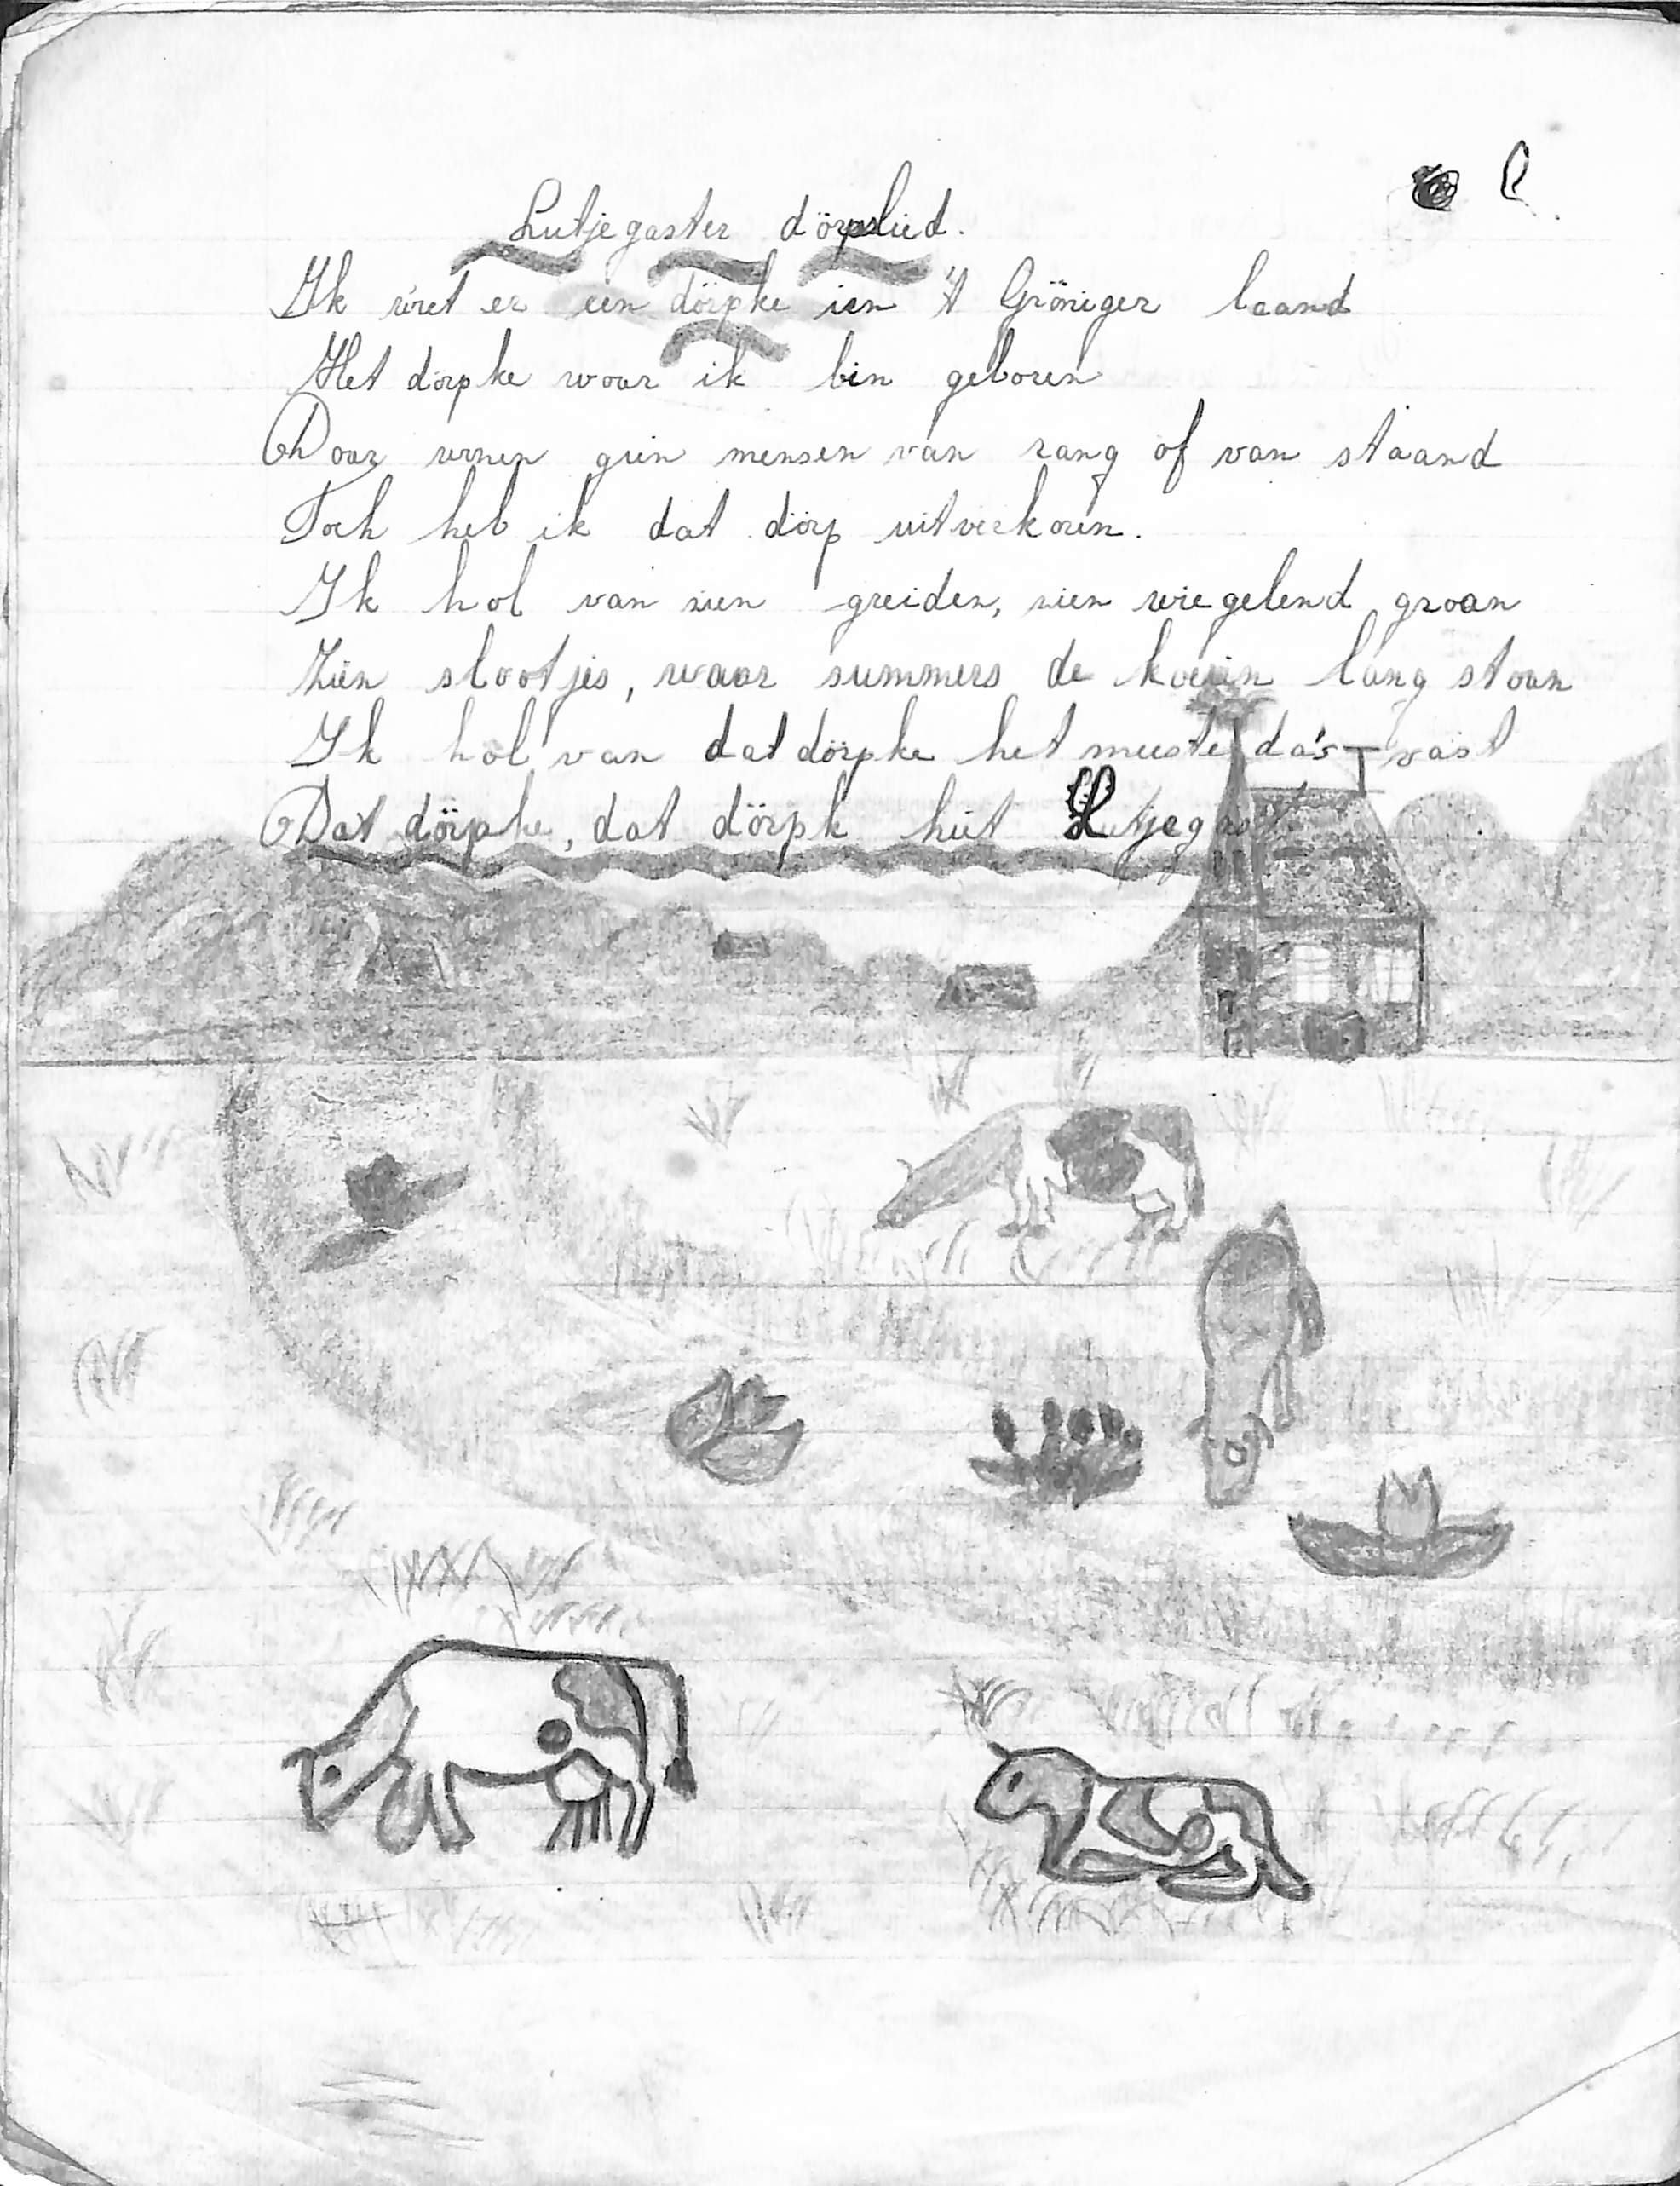 Lutjegaster dörpslied.
Ik wiet er een dörpke ien 't Gröniger laand
Het dörpke woar ik bin geboren
Doar wonen gien mensen van rang of van staand
Toch heb ik dat dörp uitverkoren.
Ik hol van zien greiden, zien wiegelend groan
Zien slootjes, waar summers de koeien lang stoan
Ik hol van dat dörpke het meeste da's vast
Dat dörpke, dat dörpk hiet Lutjegast